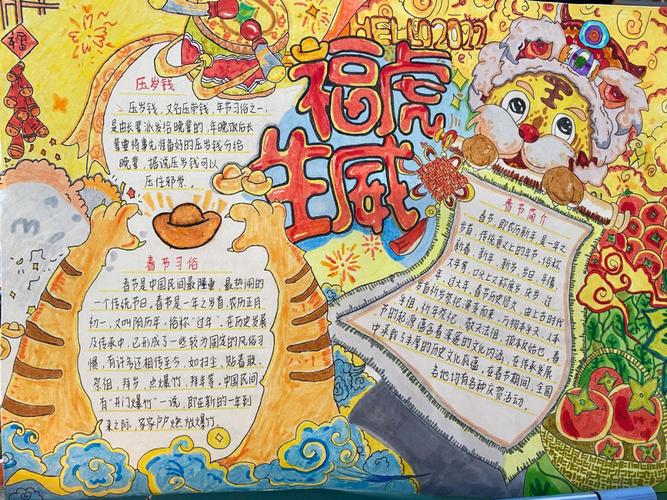 福
HELLO 2022
福虎
生威
压岁钱
压岁钱,又名压祟钱,年节习俗之一,
是由长辈派发给晚辈的,年晚饭后长
辈要将事先准备好的压岁钱分给
晚辈,据说压岁钱可以
压住邪祟。
春节习俗
春节是中国民间最隆重、最热闹的
一个传统节日,春节是一年之岁首,农历正月
初一,又叫阴历年,俗称“过年”。在历史发展
及传承中,已形成了一些较为固定的风俗习
惯,有许多还相传至今,如扫尘,贴春联、
祭祖、拜岁、点爆竹、拜年等,中国民间
有“开门爆竹”一说,即在新的一年到
来之际,家家户户燃放爆竹。
春节简介
春节,即农历新年,是一年之
岁首、传统意义上的年节,俗称
新春、新年、新岁、岁旦、年禧、
大年等,口头上又称度岁、庆岁、过
年、过大年。春节历史悠久,由上古时代
岁首祈岁祭祀演变而来,万物本乎天、人本
乎祖,祈年祭祀、敬天法祖、报本反始也。春
节的起源蕴含着深邃的文化内涵,在传承发展
中承载了丰厚的历史文化底蕴。在春节期间,全国
各地均有各种庆贺活动。